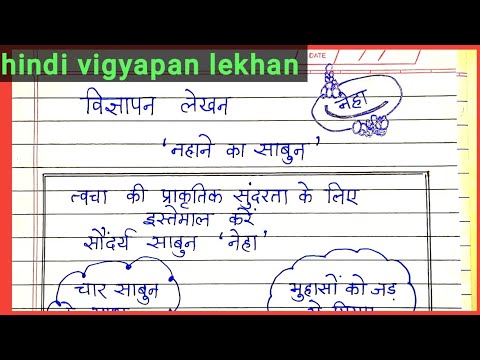 hindi vigyapan lekhan
DATE
नेहा
विज्ञापन लेखन
'नहाने का साबुन'
त्वचा की प्राकृतिक सुंदरता के लिए
इस्तेमाल करें
सौंदर्य साबुन 'नेहा'
चार साबुन
मुहासों को जड़